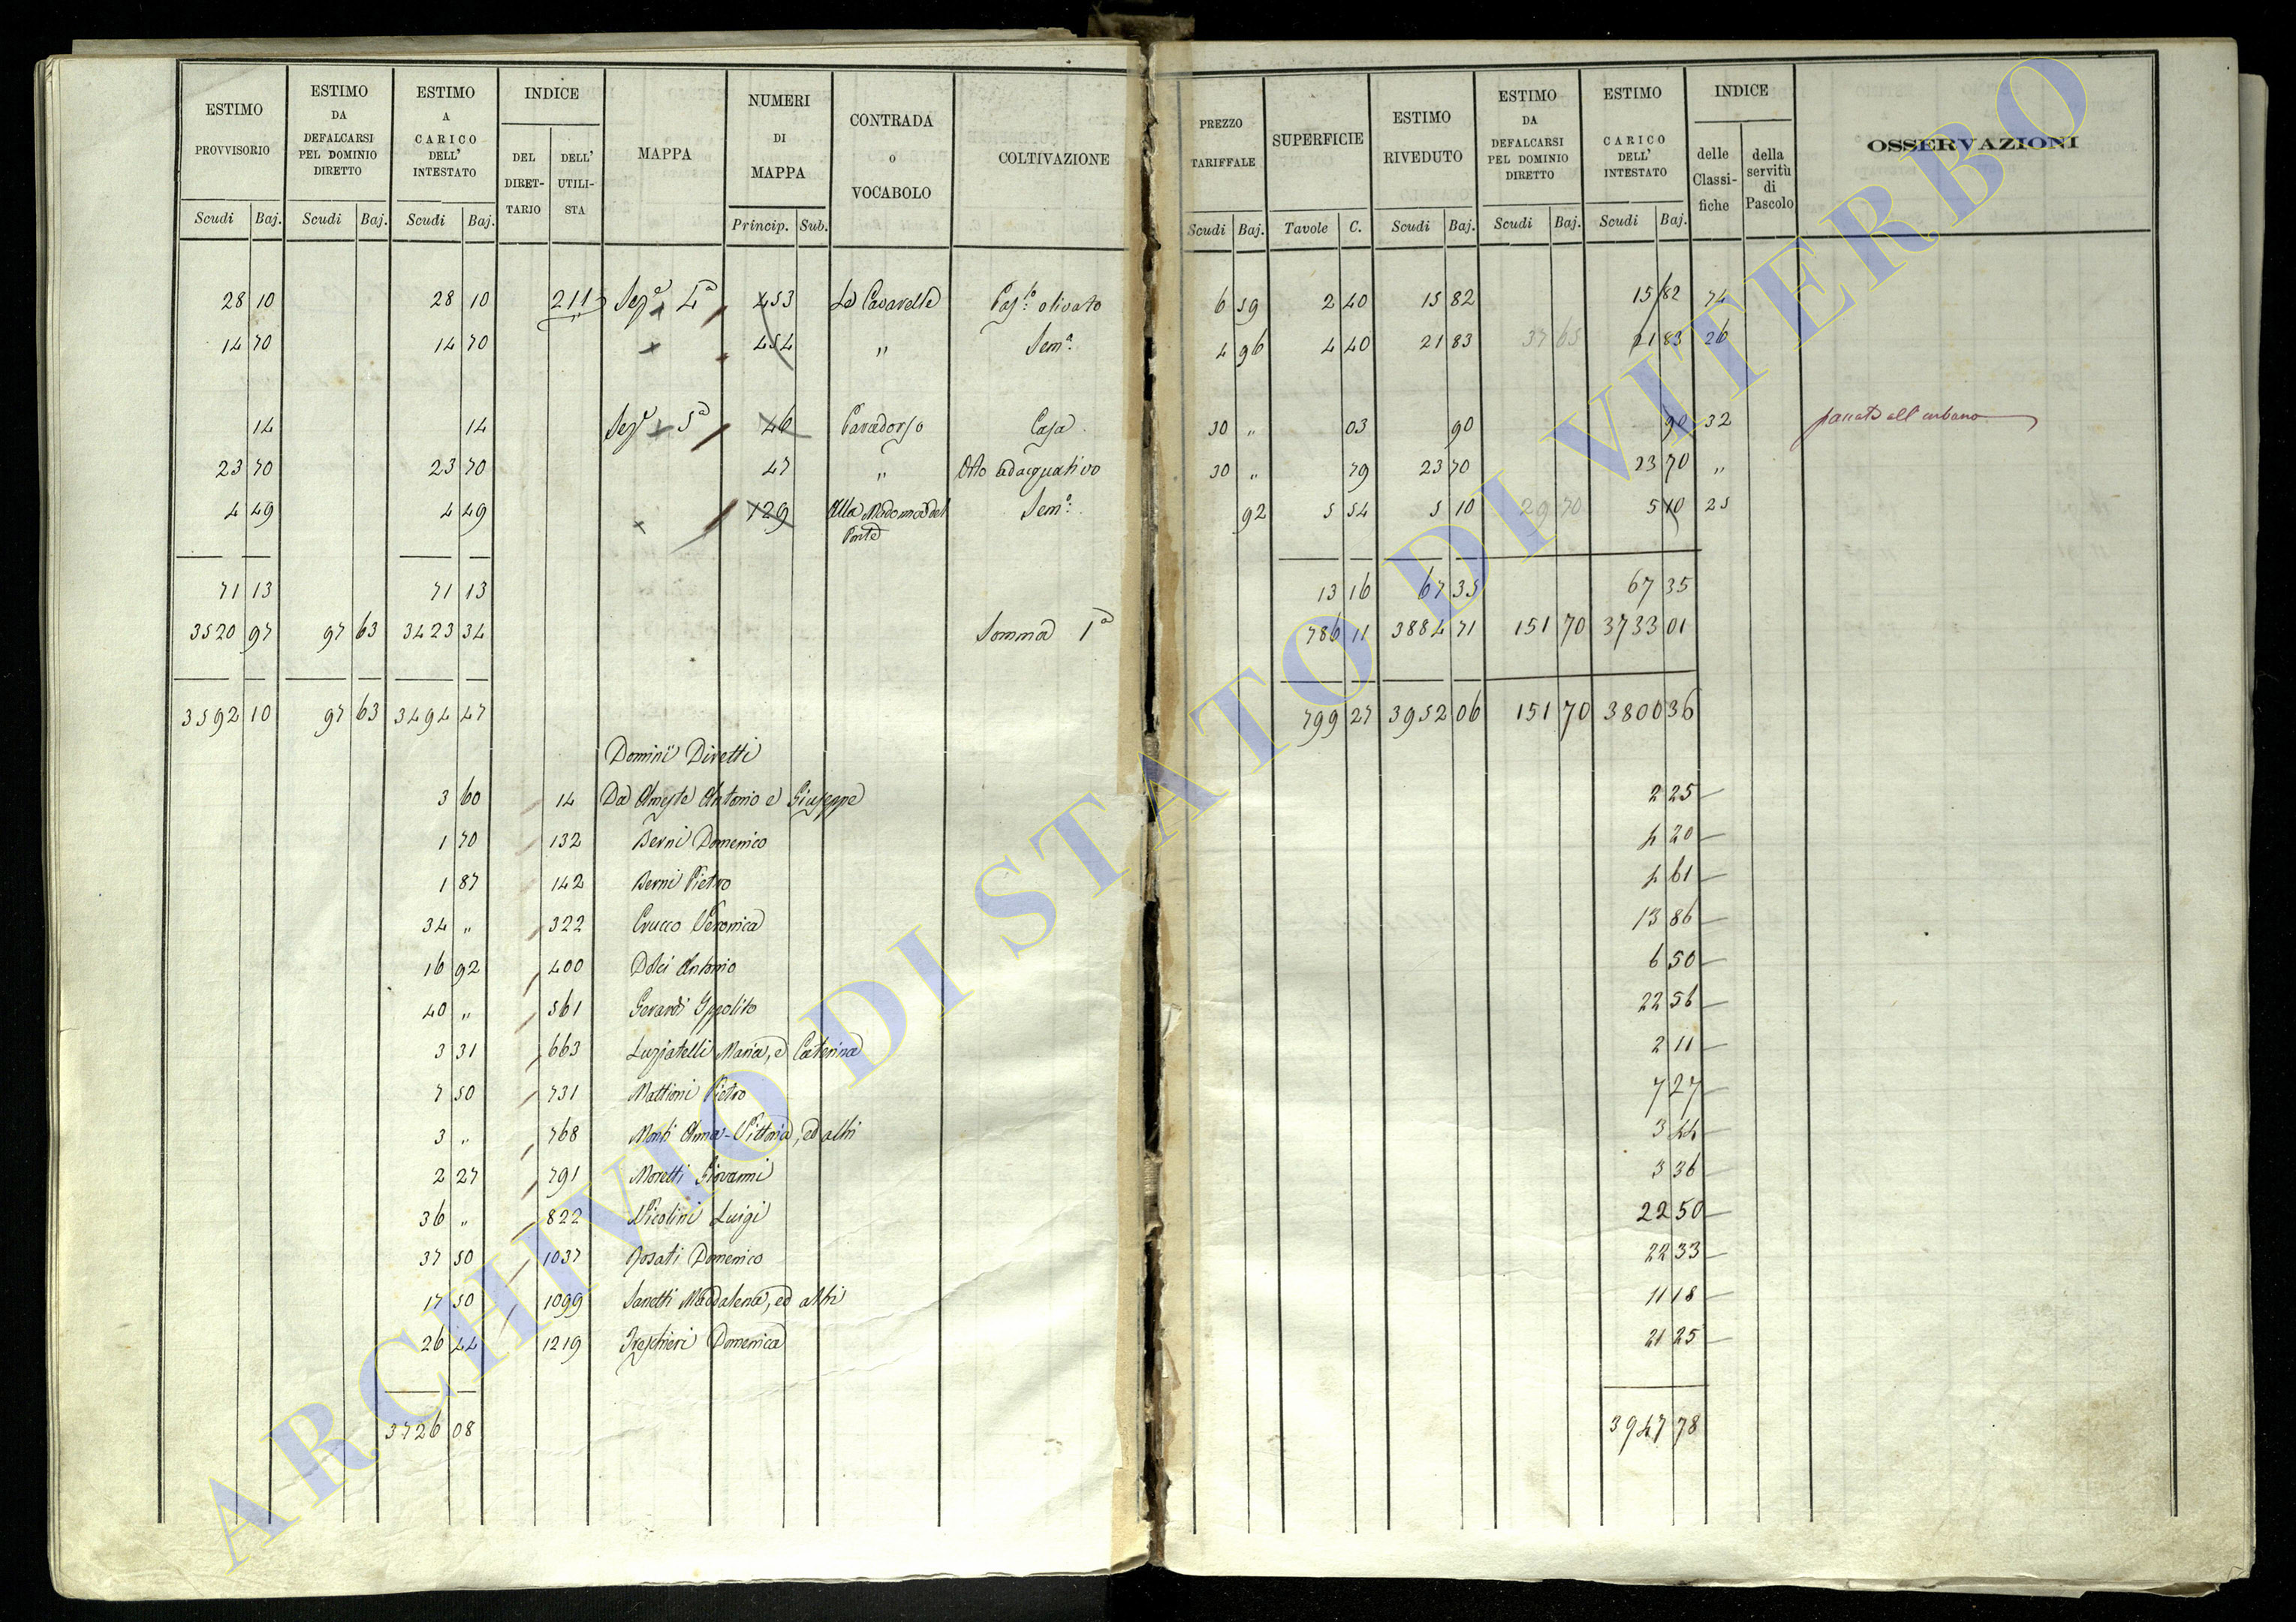 ESTIMO PROVVISORIO | ESTIMO DA DEFALCARSI PEL DOMINIO DIRETTO | ESTIMO A CARICO DELL' INTESTATO | INDICE | MAPPA | NUMERI DI MAPPA | CONTRADA O VOCABOLO | COLTIVAZIONE | PREZZO TARIFFALE | SUPERFICIE | ESTIMO RIVEDUTO | ESTIMO DA DEFALCARSI PEL DOMINIO DIRETTO | ESTIMO CARICO DELL' INTESTATO | INDICE | OSSERVAZIONI
DEL DIRETTARIO | DELL' UTILISTA | delle Classifiche | della servitù di Pascolo
Scudi | Baj. | Scudi | Baj. | Scudi | Baj. | Princip. | Sub. | Scudi | Baj. | Tavole | C. | Scudi | Baj. | Scudi | Baj. | Scudi | Baj.
28 10 | 28 10 | 211 | Seze 4a | 453 | Le Casarelle | Paso: olivato | 6 59 | 2 40 | 15 82 | 15 82 | 74
14 70 | 14 70 | 454 | " | Semo: | 4 96 | 4 40 | 21 83 | 37 65 | 21 83 | 26
14 | 14 | Seze 5a | 46 | Cavadorso | Casa | 30 " | 03 | 90 | 90 | 32 | passato all'urbano
23 70 | 23 70 | 47 | " | Orto adacquativo | 30 " | 79 | 23 70 | 23 70 | "
4 49 | 4 49 | 129 | Alla Madonna del | Semo: | 92 | 5 54 | 5 10 | 29 70 | 5 10 | 25
Ponte
71 13 | 71 13 | 13 16 | 67 35 | 67 35
3520 97 | 97 63 | 3423 34 | Somma 1a | 786 11 | 3884 71 | 151 70 | 3733 01
3592 10 | 97 63 | 3494 47 | 799 27 | 3952 06 | 151 70 | 3800 36
Dominii Diretti
3 60 | 14 | Da Antonio e Giuseppe | 2 25
1 70 | 132 | Berni Domenico | 4 20
1 87 | 142 | Berni Pietro | 4 61
34 " | 322 | Crucco Veronica | 13 86
16 92 | 400 | Dolci Antonio | 6 50
40 " | 561 | Gerardi Ippolito | 22 56
3 31 | 663 | Luzziatelli Maria, e Caterina | 2 11
7 50 | 731 | Mattioni Pietro | 7 27
3 " | 768 | Monti Anna-Vittoria, ed altri | 3 44
2 27 | 791 | Moretti Giovanni | 3 36
36 " | 822 | Nicolini Luigi | 22 50
37 50 | 1037 | Rosati Domenico | 22 33
17 50 | 1099 | Sanetti Maddalena, ed altri | 11 18
26 44 | 1219 | Treschieri Domenica | 21 25
3726 08 | 3947 78
ARCHIVIO DI STATO DI VITERBO